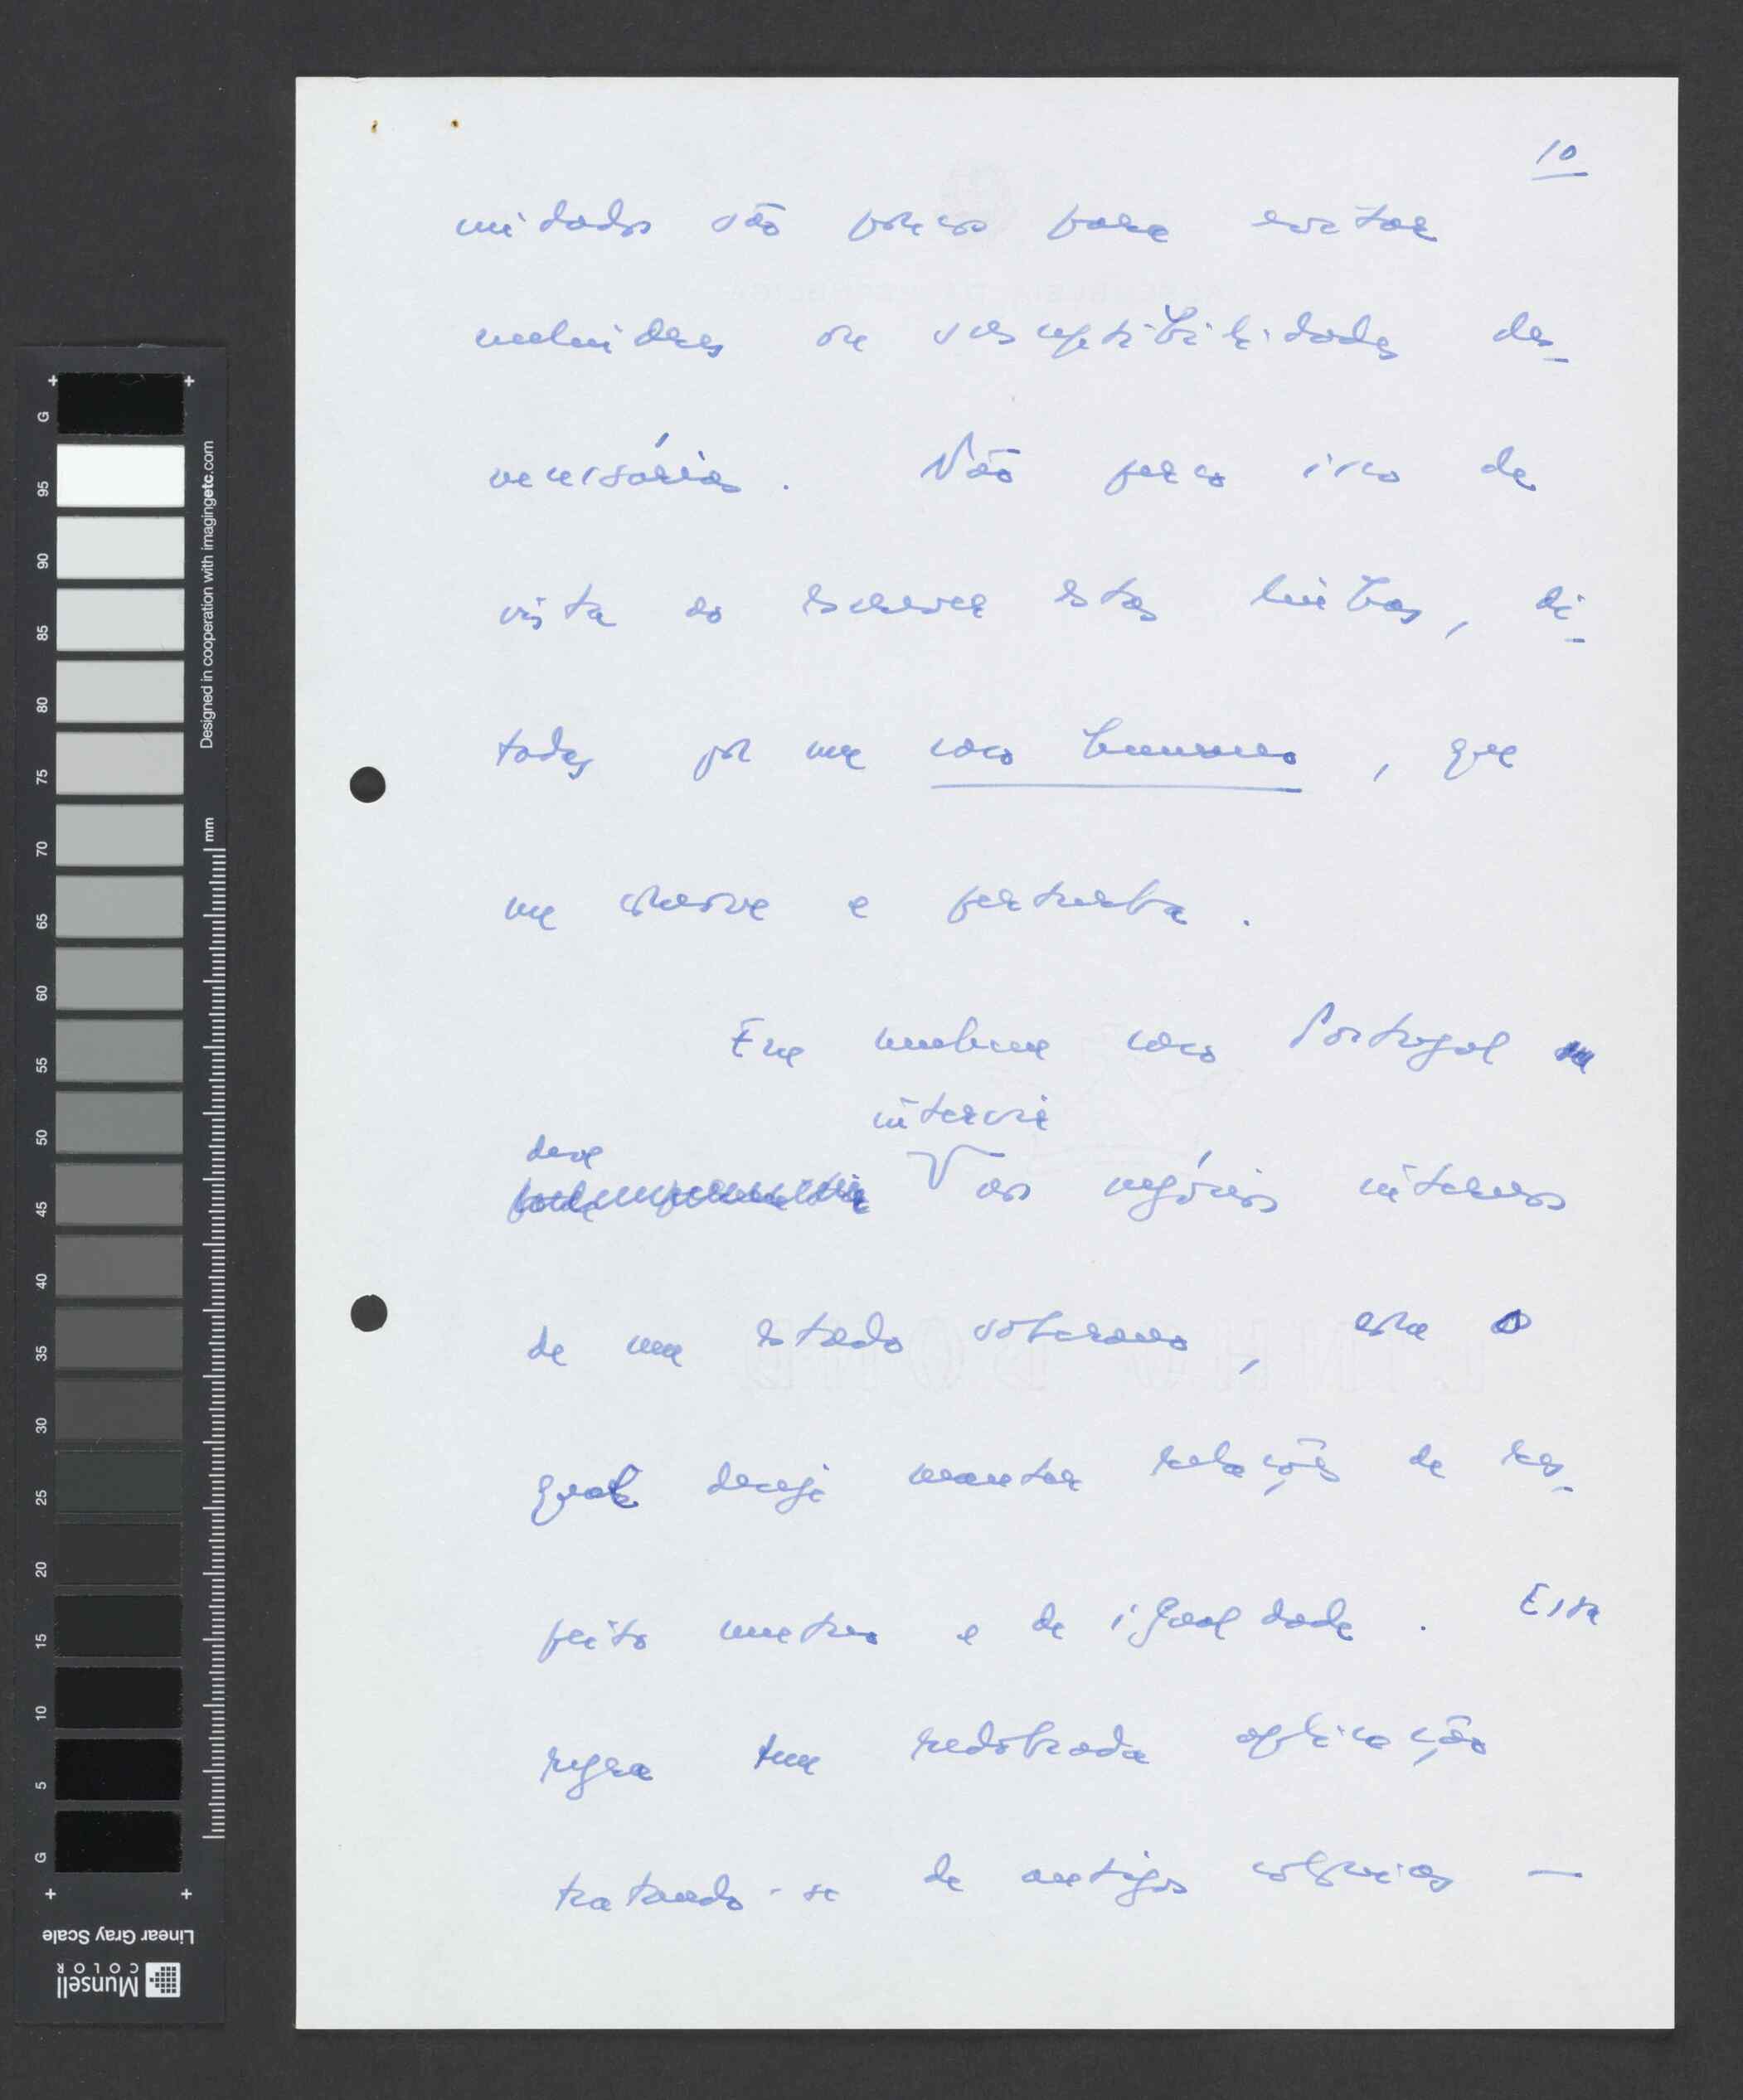 10
cuidados são poucos para evitar
melindres ou susceptibilidades des-
necessárias. Não perco isso de
vista ao escrever estas linhas, di-
tadas por um caso humano, que
me comove e perturba.
Em nenhum caso Portugal
intervir
deve
nos negócios internos
de um Estado soberano, com o
qual deseja manter relações de res-
peito mútuo e de igualdade. Essa
regra tem redobrada aplicação
tratando-se de antigas colónias —
G 95 90 85 80 75 70 65 60 55 50 45 40 35 30 25 20 15 10 5 G
Designed in cooperation with imagingetc.com
mm
Linear Gray Scale
Munsell
COLOR